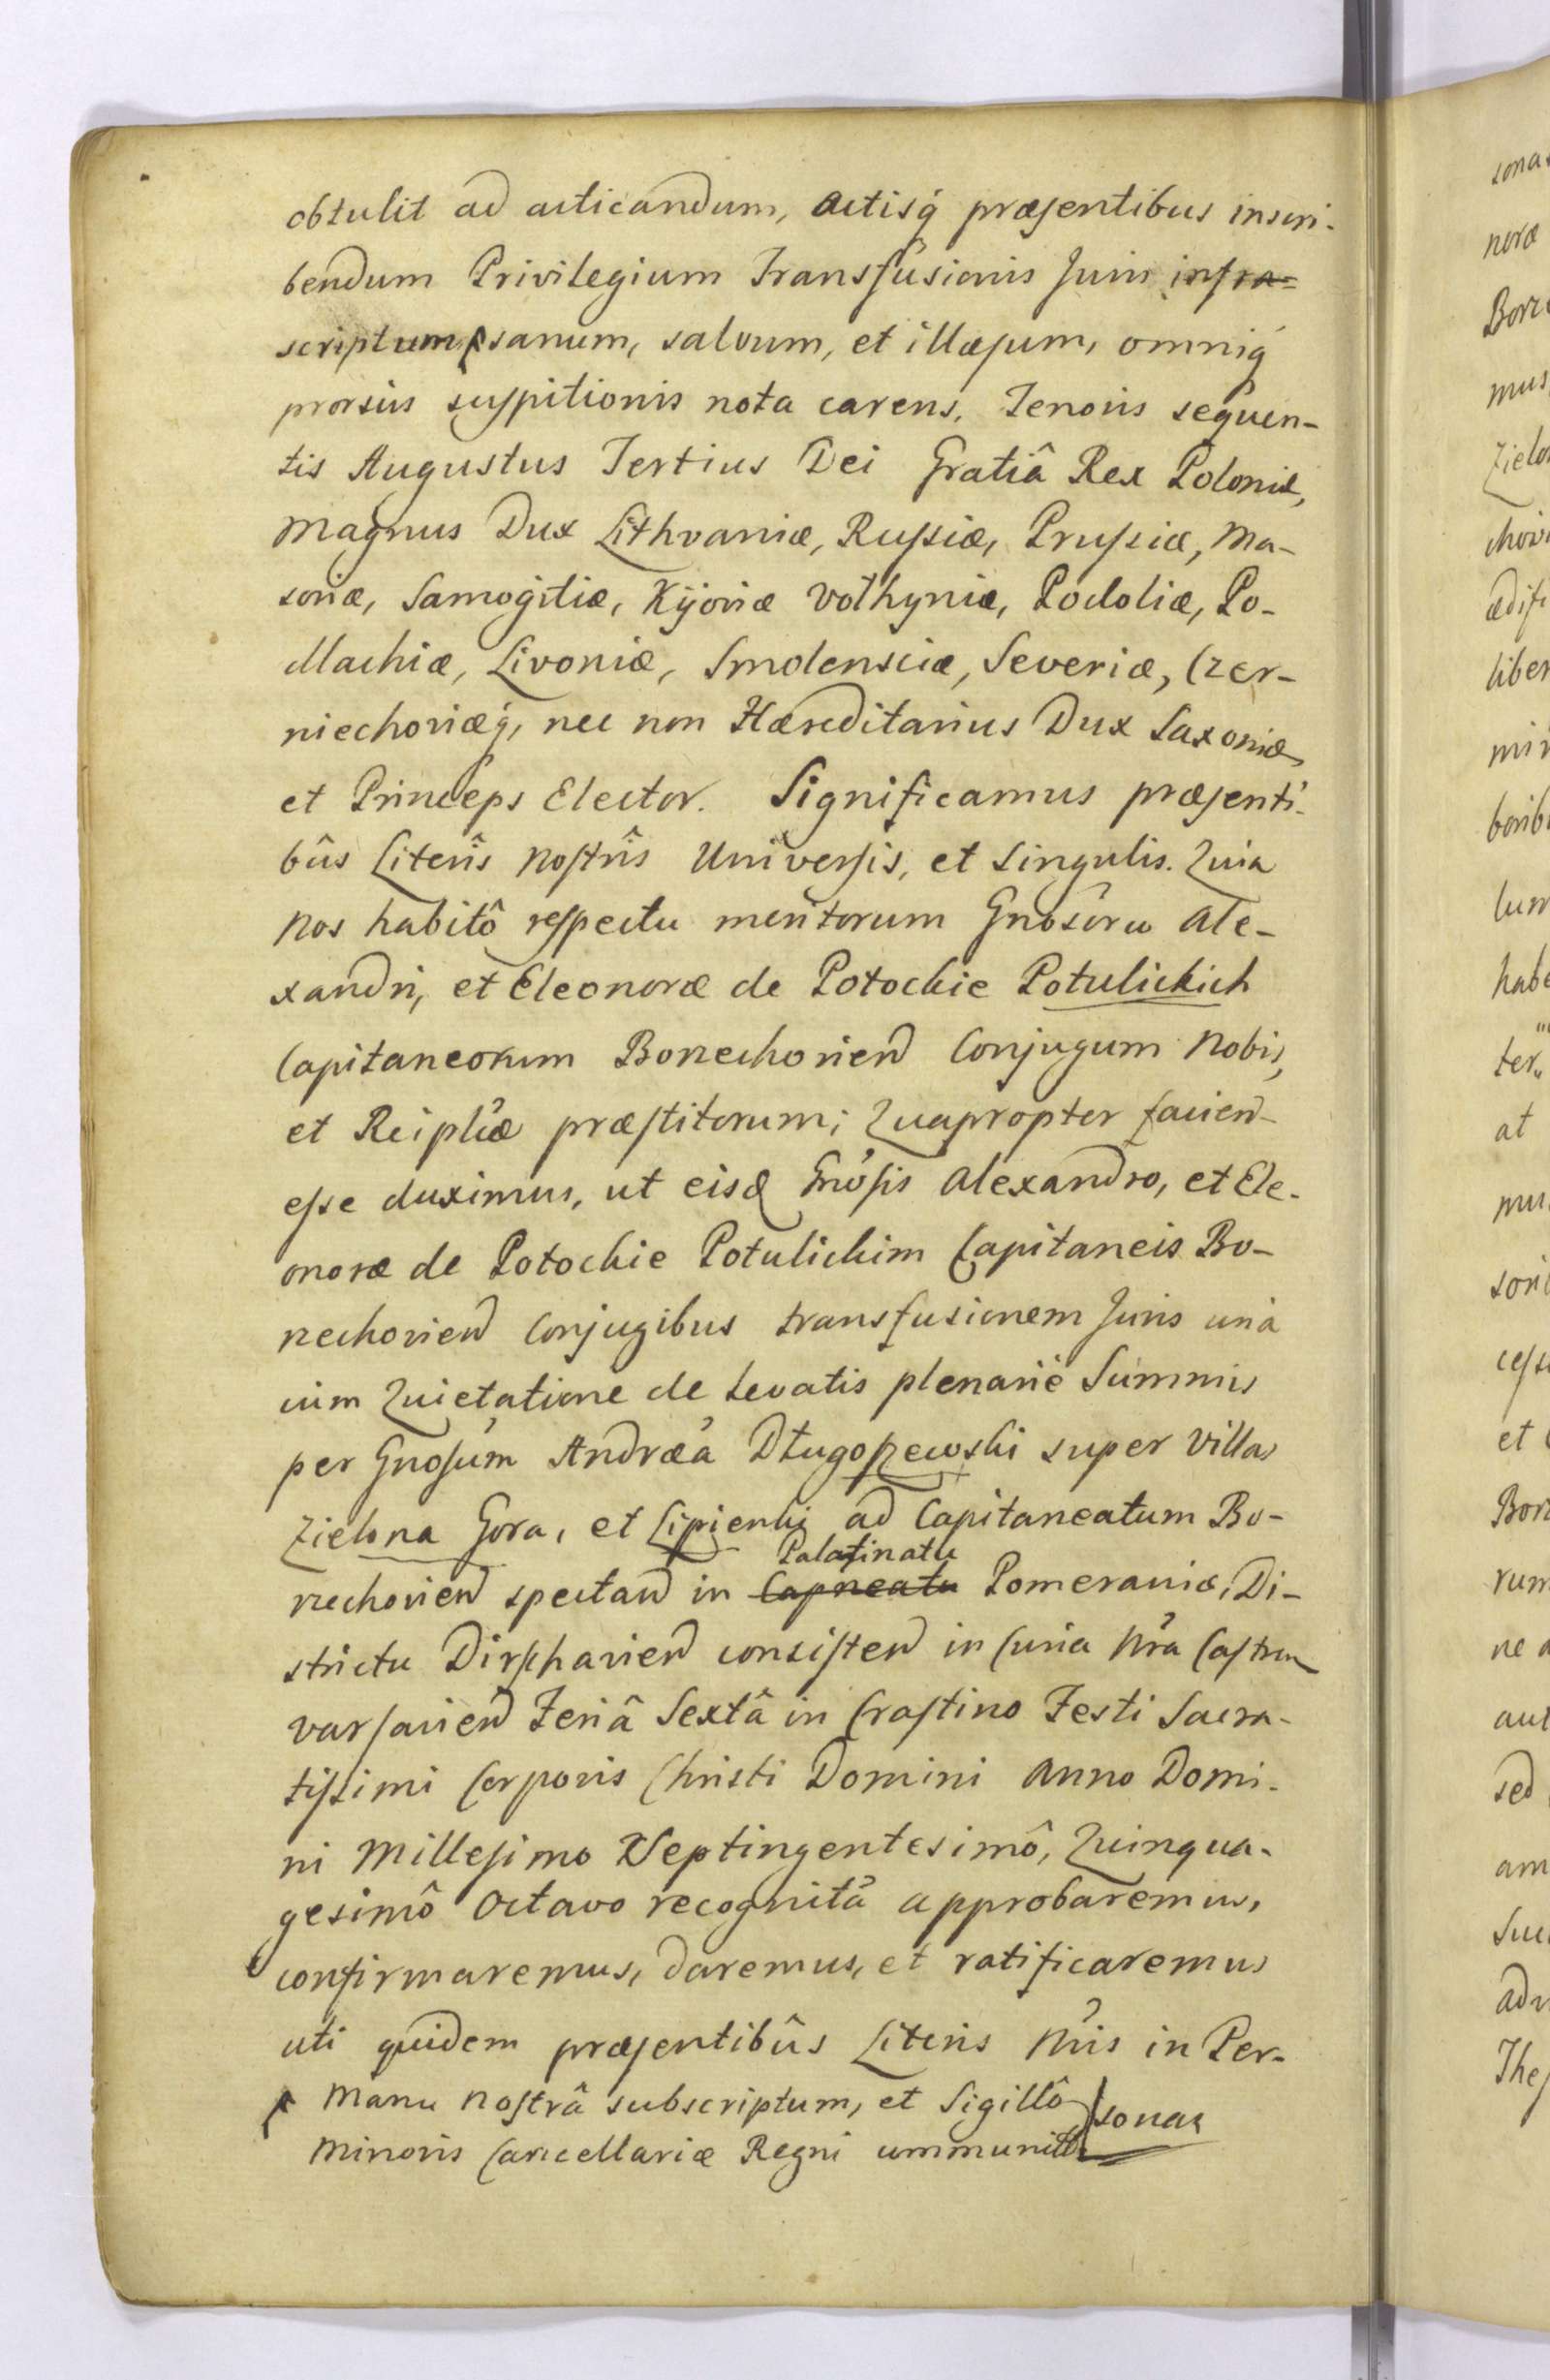 obtulit ad acticandum, actisq́ præsentibus inscri-
bendum Privilegium Transfusionis Juris infra=
scriptum sanum, salvum, et illæsum, omniq́
prorsus suspitionis nota carens. Tenoris sequen-
tis Augustus Tertius Dei Gratiâ Rex Poloniæ,
Magnus Dux Lithvaniæ, Russiæ, Prussiæ, Ma-
soviæ, Samogitiæ, Kijoviæ Volhyniæ, Podoliæ, Po-
dlachiæ, Livoniæ, Smolensciæ, Severiæ, Czer-
niechoviæq́, nec non Hæreditarius Dux Saxoniæ,
et Princeps Elector. Significamus præsenti-
bûs Literîs nostrîs Universis, et Singulis. Quia
Nos habitô respectu meritorum Gnosoru Ale-
xandri, et Eleonoræ de Potockie Potulickich
Capitaneorum Borzechovien Conjugum Nobis,
et Reiplicæ præstitorum; Quapropter facien
esse duximus, ut eisd Gnosis Alexandro, et Ele-
onoræ de Potockie Potulickim Capitaneis Bo-
rzechovien Conjugibus transfusionem Juris unà
cum Quietatione de levatis plenariè Summis
per Gnosum Andræa Długoszewski super Villas
Zielona Gora, et Lipienki ad Capitaneatum Bo-
Palatinatu
rzechovien spectan in Capneatu Pomeraniæ, Di-
strictu Dirschavien consisten in Curia Nra Castren
Varsavien Feriâ Sextâ in Crastino Festi Sacra-
tissimi Corporis Christi Domini Anno Domi-
ni Millesimo Septingentesimô, Quinqua-
gesimô Octavo recognita approbaremus,
confirmaremus, daremus, et ratificaremus
uti quidem præsentibûs Literis Nris in Per-
Manu Nostrâ subscriptum, et Sigillô sonas
Minoris Cancellariæ Regni communit
sona
noræ
Borz
mus
Zielo
chovi
ædifi
liber
min
bonib
lum
habe
ter
at
mu
soni
cess
et
Borz
rum
ne a
aut
sed
am
Suc
adv
Thes